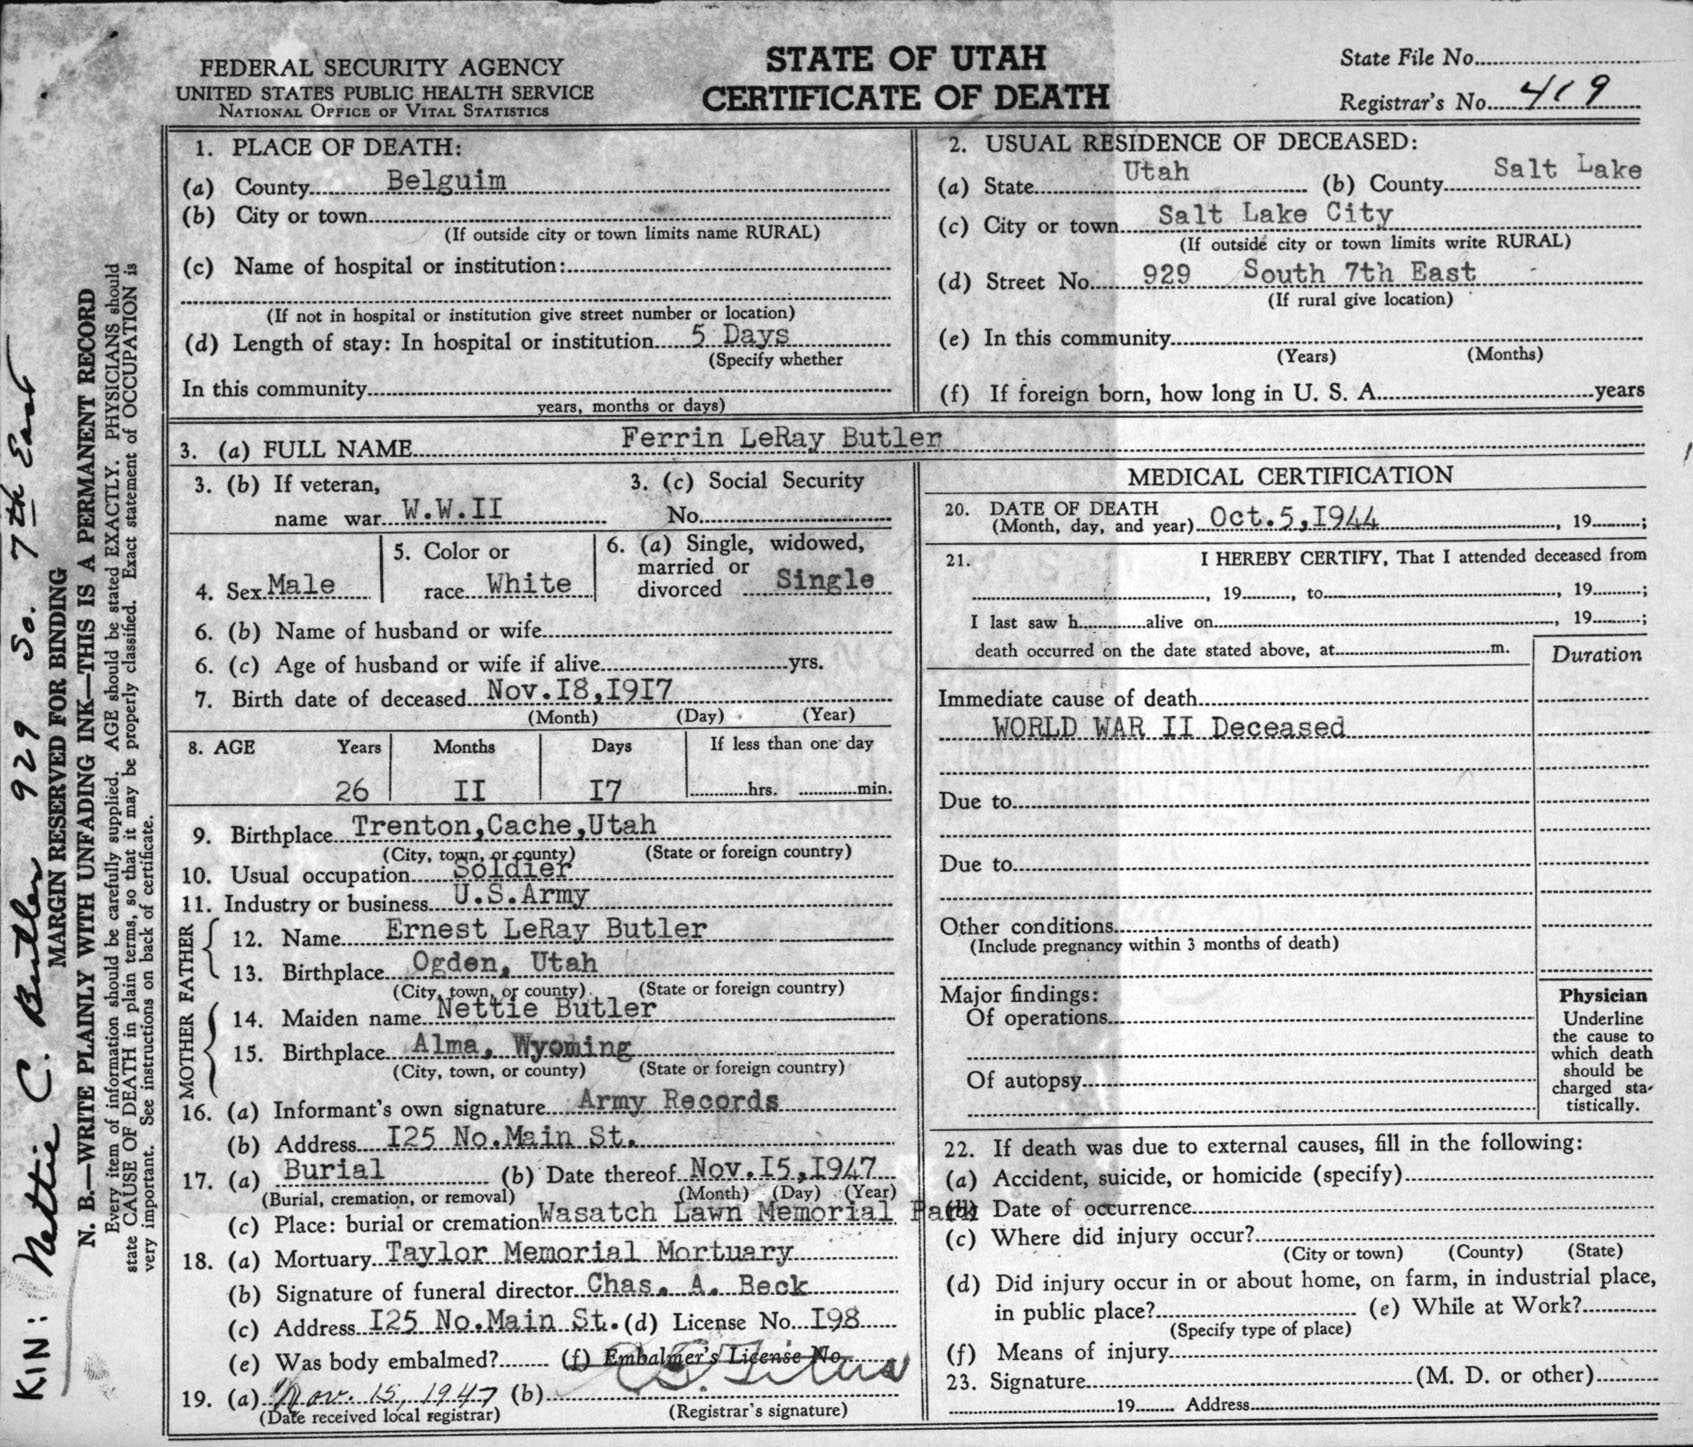 FEDERAL SECURITY AGENCY
UNITED STATES PUBLIC HEALTH SERVICE
NATIONAL OFFICE OF VITAL STATISTICS
STATE OF UTAH
CERTIFICATE OF DEATH
State File No.
Registrar's No. 419
1. PLACE OF DEATH:
(a) County Belguim
(b) City or town
(If outside city or town limits name RURAL)
(c) Name of hospital or institution:
(If not in hospital or institution give street number or location)
(d) Length of stay: In hospital or institution 5 Days
(Specify whether
In this community
years, months or days)
2. USUAL RESIDENCE OF DECEASED:
(a) State Utah (b) County Salt Lake
(c) City or town Salt Lake City
(If outside city or town limits write RURAL)
(d) Street No. 929 South 7th East
(If rural give location)
(e) In this community
(Years) (Months)
(f) If foreign born, how long in U. S. A. years
3. (a) FULL NAME Ferrin LeRay Butler
3. (b) If veteran,
name war W.W.II
3. (c) Social Security
No.
4. Sex Male
5. Color or
race White
6. (a) Single, widowed,
married or
divorced Single
6. (b) Name of husband or wife
6. (c) Age of husband or wife if alive yrs.
7. Birth date of deceased Nov.I8,I9I7
(Month) (Day) (Year)
8. AGE Years Months Days If less than one day
26 II I7 hrs. min.
9. Birthplace Trenton,Cache,Utah
(City, town, or county) (State or foreign country)
10. Usual occupation Soldier
11. Industry or business U.S.Army
FATHER
12. Name Ernest LeRay Butler
13. Birthplace Ogden, Utah
(City, town, or county) (State or foreign country)
MOTHER
14. Maiden name Nettie Butler
15. Birthplace Alma, Wyoming
(City, town, or county) (State or foreign country)
16. (a) Informant's own signature Army Records
(b) Address I25 No.Main St.
17. (a) Burial (b) Date thereof Nov.I5,I947
(Burial, cremation, or removal) (Month) (Day) (Year)
(c) Place: burial or cremation Wasatch Lawn Memorial Park
18. (a) Mortuary Taylor Memorial Mortuary
(b) Signature of funeral director Chas. A. Beck
(c) Address I25 No.Main St. (d) License No. I98
(e) Was body embalmed? (f) Embalmer's License No.
19. (a) Nov. 15, 1947 (b)
(Date received local registrar) (Registrar's signature)
MEDICAL CERTIFICATION
20. DATE OF DEATH
(Month, day, and year) Oct.5,I944, 19 ;
21. I HEREBY CERTIFY, That I attended deceased from
, 19 , to , 19 ;
I last saw h alive on , 19 ;
death occurred on the date stated above, at m.
Duration
Immediate cause of death
WORLD WAR II Deceased
Due to
Due to
Other conditions
(Include pregnancy within 3 months of death)
Major findings:
Of operations
Of autopsy
Physician
Underline
the cause to
which death
should be
charged sta-
tistically.
22. If death was due to external causes, fill in the following:
(a) Accident, suicide, or homicide (specify)
(b) Date of occurrence
(c) Where did injury occur?
(City or town) (County) (State)
(d) Did injury occur in or about home, on farm, in industrial place,
in public place? (e) While at Work?
(Specify type of place)
(f) Means of injury
23. Signature (M. D. or other)
19 Address
KIN: Nettie C. Butler 929 So. 7th East
MARGIN RESERVED FOR BINDING
N. B.—WRITE PLAINLY WITH UNFADING INK—THIS IS A PERMANENT RECORD
Every item of information should be carefully supplied. AGE should be stated EXACTLY. PHYSICIANS should
state CAUSE OF DEATH in plain terms, so that it may be properly classified. Exact statement of OCCUPATION is
very important. See instructions on back of certificate.